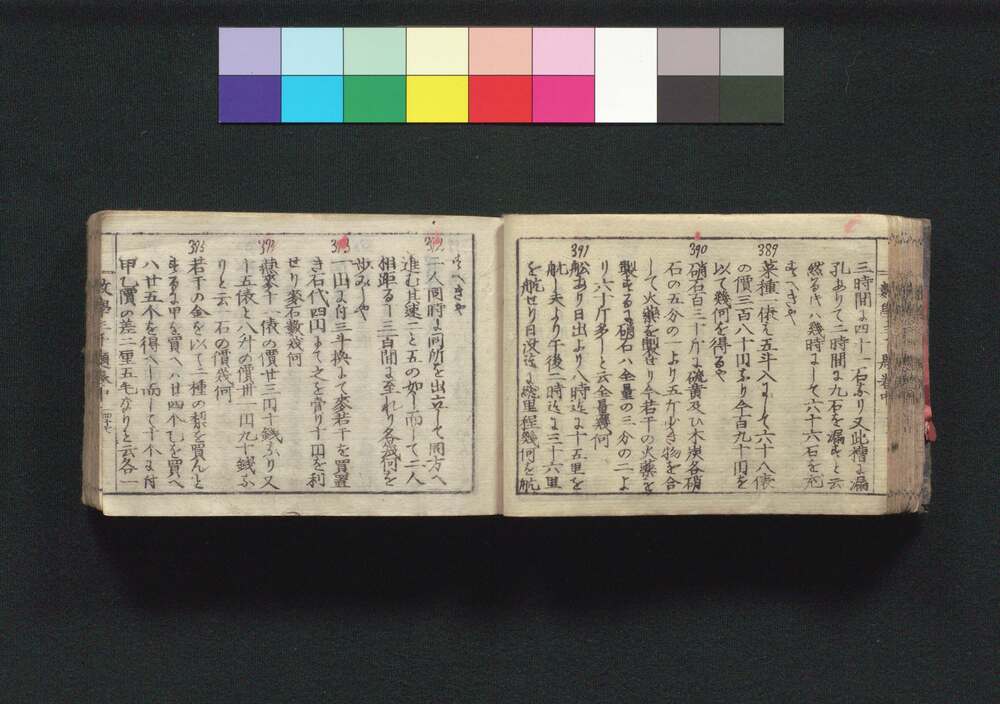 三時間に四十一石なり又此槽に漏
孔ありて二時間に九石を漏すと云
然るときハ幾時にして六十六石を充
すへきや
389
菜種一俵は五斗入にして六十八俵
の價三百八十円なり今百九十円を
以て幾何を得るや
390
硝石百三十斤に硫黄及ひ木炭各硝
石の五分の一より五斤少き物を合
して火藥を製せり今若干の火藥を
製するに硝石ハ全量の三分の二よ
り六十斤多しと云全量幾何
391
舩あり日出より八時迄に十五里を
航し夫より午後二時迄に三十六里
を航せり日没迄に里程幾何を航
すへきや
392
二人同時に同所を出立して同方へ
進む其速二と五の如し而して二人
相距る一三百間に至れり各幾何を
歩みしや
393
一山に付三斗換にて麥若干を買置
き石代四円にて之を賣り十円を利
せり麥石數幾何
394
麥十一俵の價廿三円十銭なり又
十五俵と八升の價卅一円九十銭な
りと云一石の價幾何
395
若干の金を以て二種の梨を買んと
するに甲を買へハ廿四个乙を買へ
ハ廿五个を得へし而して十个に付
甲乙價の差二厘五毛なりと云各一